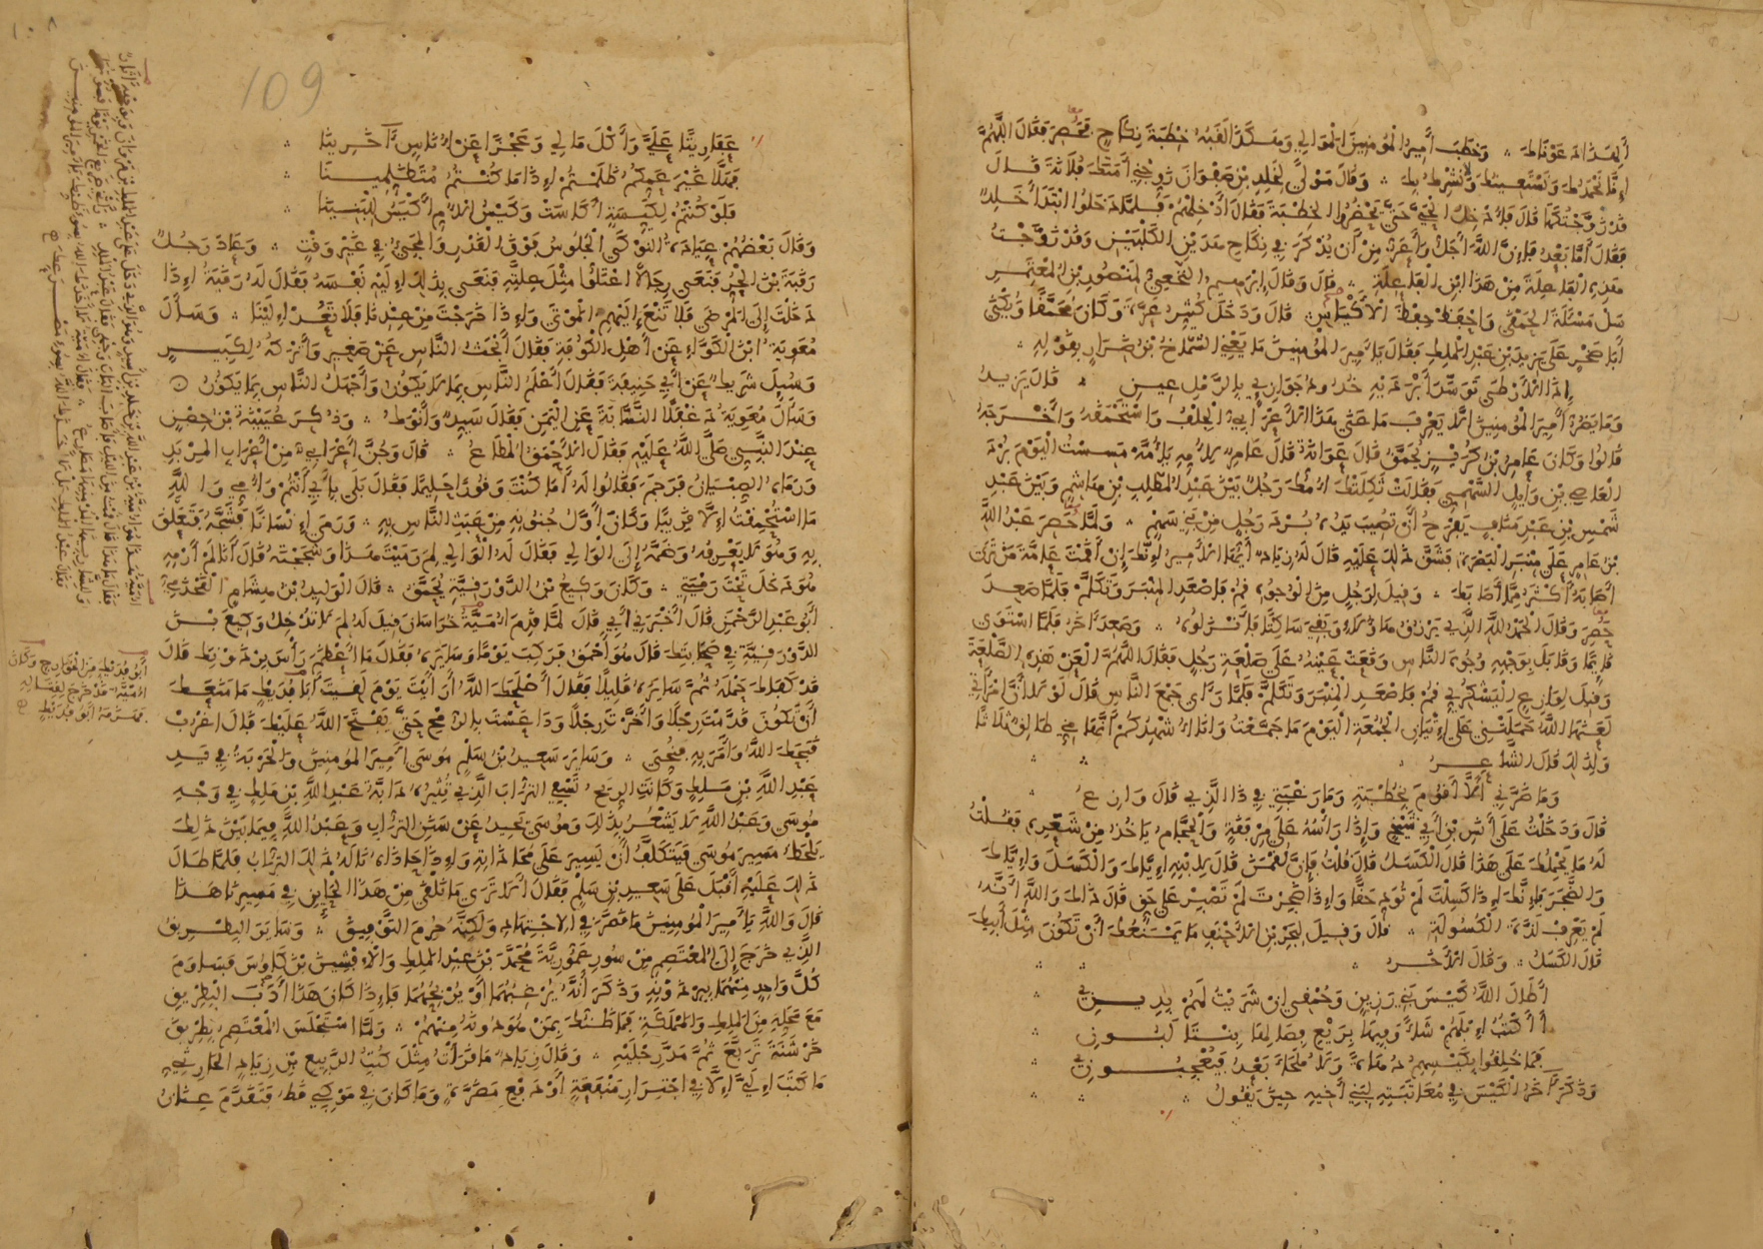 وخطب أمير المؤمنين الموالي وهكذا لقبه خطبة نكاح فحصر فقال اللهم
إنا نحمدك ونستعينك ولا نشرك بك وقال مولى لخلد بن صفوان زوجني أمتك فلانة قال
قد زوجتكها قال فادخل الحي حتى يحضروا الخطبة فقال أدخلهم فلما دخلوا ابتدأ خلد
فقال أما بعد فإن الله أجل وأعز من أن يذكر في نكاح هذين الكلبين وقد زوجت
هذه الفاعلة من هذا ابن الفاعلة قال وقال إبرهيم النخعي لمنصور بن المعتمر
سل مسئلة الحمقى واحفظ حفظ الأكياس قال ودخل كثير عزة وكان محمقا ويكنى
أبا صخر على يزيد بن عبد الملك فقال يا أمير المؤمنين ما يعني الشماخ بن ضرار بقوله
إذا الأرطى توسد أبرديه خدود جوازئ بالرمل عين قال يزيد
وما يضر أمير المؤمنين ألا يعرف ما عنى هذا الأعرابي الجلف واستحمقه وأخرجه
قالوا وكان عامر بن كريز يحمق قال عوانة قال عامر لأمه مسست اليوم برد
العاصي بن وائل السهمي فقالت ثكلتك أمك رجل بين عبد المطلب بن هاشم وبين عبد
شمس بن عبد مناف يفرح أن تصيب يده برد رجل من بني سهم ولما حصر عبد الله
بن عامر على منبر البصرة فشق ذلك عليه قال له زياد أيها الأمير إنك إن أقمت عامة من ترى
أصابه أكثر مما أصابك وقيل لرجل من الوجوه قم فاصعد المنبر وتكلم فلما صعد
حصر وقال الحمد لله الذي يرزق هؤلاء وبقي ساكتا فأنزلوه وصعد آخر فلما استوى
قائما وقابل بوجهه وجوه الناس وقعت عينه على صلعة رجل فقال اللهم العن هذه الصلعة
وقيل لوازع اليشكري قم فاصعد المنبر وتكلم فلما رأى جمع الناس قال لولا أن امرأتي
لعنها الله حملتني على إتيان الجمعة اليوم ما جمعت وأنا أشهدكم أنها مني طالق ثلاثا
ولذلك قال الشاعر
وما ضرني ألا أقوم بخطبة وما رغبتي في ذا الذي قال وازع
قال ودخلت على أنس بن أبي شيخ وإذا رأسه على مرفقة والحجام يأخذ من شعره فقلت
له ما يحملك على هذا قال الكسل قال قلت فإن لقمن قال لابنه إياك والكسل وإياك
والضجر فإنك إذا كسلت لم تؤد حقا وإذا ضجرت لم تصبر على حق قال ذاك والله أنه
لم يعرف لذة الكسولة قال وقيل لبحر بن الأحنف ما يمنعك أن تكون مثل أبيك
قال الكسل وقال الآخر
أطال الله كيس بني رزين وحمقي إن شريت لهم بدين
أأكتب إبلهم شاء وفيها بريع فصالها بنتا لبون
فما خلقوا بكيسهم دهاة ولا ملجاء بعد فيعجبوني
وذكر آخر الكيس في معاتبته لبني أخيه حين يقول
109
عفاريتا علي وأكل مالي وعجزا عن أناس آخرينا
فهلا غير عمكم ظلمتم إذا ما كنتم متظلمينا
فلو كنتم لكيسة أكاست وكيس الأم أكيس للبنينا
وقال بعضهم عيادة النوكى الجلوس فوق القدر والمجيء في غير وقت وعاد رجل
رقبة بن الحر فنعى رجالا اعتلوا مثل علته فنعى بذلك إليه نفسه فقال له رقبة إذا
دخلت إلى المرضى فلا تنع إليهم الموتى وإذا خرجت من عندنا فلا تعد إلينا وسأل
معوية ابن الكواء عن أهل الكوفة فقال أبحث الناس عن صغير وأتركه لكبير
وسئل شريك عن أبي حنيفة فقال أعلم الناس بما لا يكون وأجهل الناس بما يكون
وسأل معوية دغفلا النسابة عن اليمن فقال سيد وأنوك وذكر عيينة بن حصن
عند النبي صلى الله عليه فقال الأحمق المطاع قال وجن أعرابي من أعراب المربد
ورماه الصبيان فرجم فقالوا له أما كنت وقورا حليما فقال بلى بأبي أنتم وأمي والله
ما استحمقت إلا قريبا وكان أول جنونه من عبث الناس به ورمى إنسانا فشجه فتعلق
به وهو لا يعرفه وضمه إلى الوالي فقال له الوالي لم رميت هذا وشججته قال أنا لم أرمه
هو دخل تحت رميتي وكان وكيع بن الدورقية يحمق قال الوليد بن هشام القحذمي
أبو عبد الرحمن قال أخبرني أبي قال لما قدم أمية خراسان قيل له لم لا تدخل وكيع بن
الدورقية في صحابتك قال هو أحمق فركب يوما وسايره فقال ما أعظم رأس برذونك قال
قد كفاك حمله ثم سايره قليلا فقال أصلحك الله أرأيت يوم لقيت أبا فديك ما منعك
أن تكون قدمت رجلا وأخرت رجلا وداعست بالرمح حتى يفتح الله عليك قال اغرب
قبحك الله وأمر به فنحي وساير سعيد بن سلم موسى أمير المؤمنين والحربة في يد
عبد الله بن ملك وكانت الريح تسفي التراب الذي تثيره دابة عبد الله بن ملك في وجه
موسى وعبد الله لا يشعر بذلك وموسى يحيد عن سنن التراب وعبد الله فيما بين ذلك
يلحظ مسير موسى فيتكلف أن يسير على محاذاته وإذا حاذاه ناله ذلك التراب فلما طال
ذلك عليه أقبل على سعيد بن سلم فقال ألا ترى ما نلقى من هذا الخائن في مسيرنا هذا
قال والله يا أمير المؤمنين ما قصر في الاجتهاد ولكنه حرم التوفيق وساير البطريق
الذي خرج إلى المعتصم من سور عمورية محمد بن عبد الملك والأفشين بن كاوس فساوم
كل واحد منهما ببرذونه وذكر أنه يرغبهما أو يربحهما فإذا كان هذا أدب البطريق
مع محله من الملك والمملكة فما ظنك بمن هو دونه منهم ولما استجلس المعتصم بطريق
خرشنة تربع ثم مد رجليه وقال زياد ما قرأت مثل كتب الربيع بن زياد الحارثي
ما كتب إلي إلا في اجترار منفعة أو دفع مضرة وما كان في موكبي قط فتقدم عنان